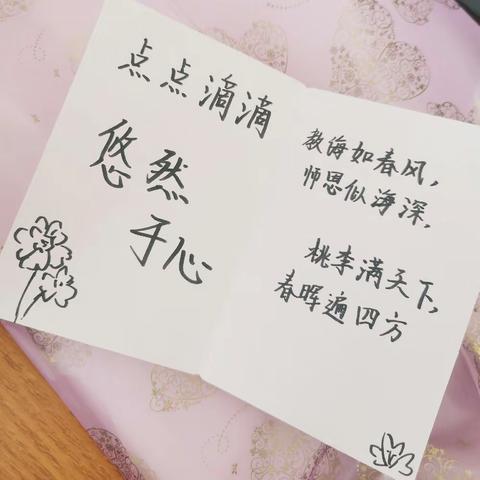 点点滴滴
悠然
于心
教诲如春风,
师恩似海深,
桃李满天下,
春晖遍四方